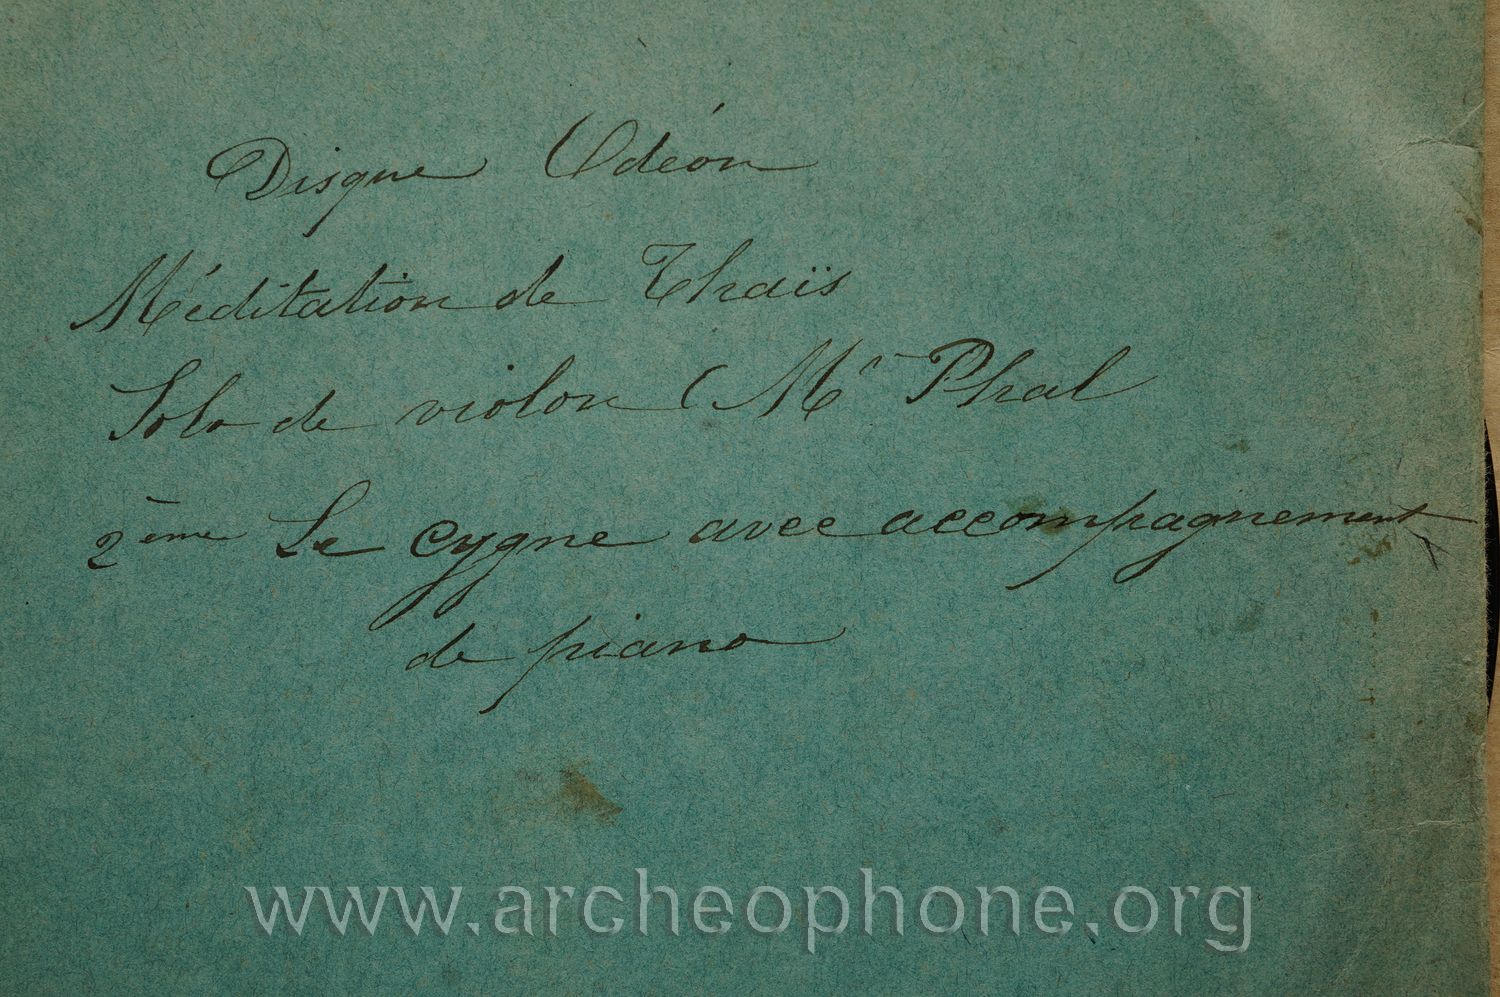 Disque Odéon
Méditation de Thaïs
Solo de violon (Mr Phal
2ème Le Cygne avec accompagnement
de piano
www.archeophone.org